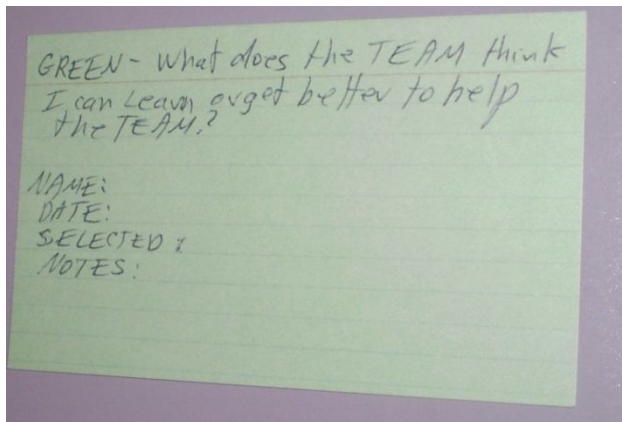 GREEN - What does the TEAM think
I can Learn or get better to help
the TEAM?
NAME:
DATE:
SELECTED:
NOTES: